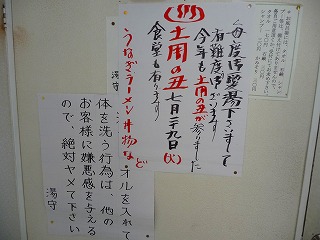 毎度御愛湯下さいまして
有難度ございます
今年も土用の丑が参りました
♨土用の丑 七月二十九日(火)
食堂も有ります
うなぎラーメン丼物など
湯守
オルを入れて
体を洗う行為は、他の
お客様に嫌悪感を与える
ので、絶対ヤメて下さい
湯守